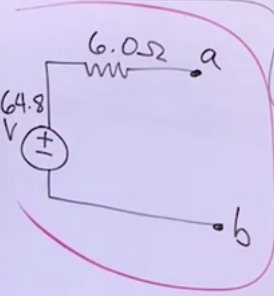 6.0Ω
a
64.8
V
+
−
b